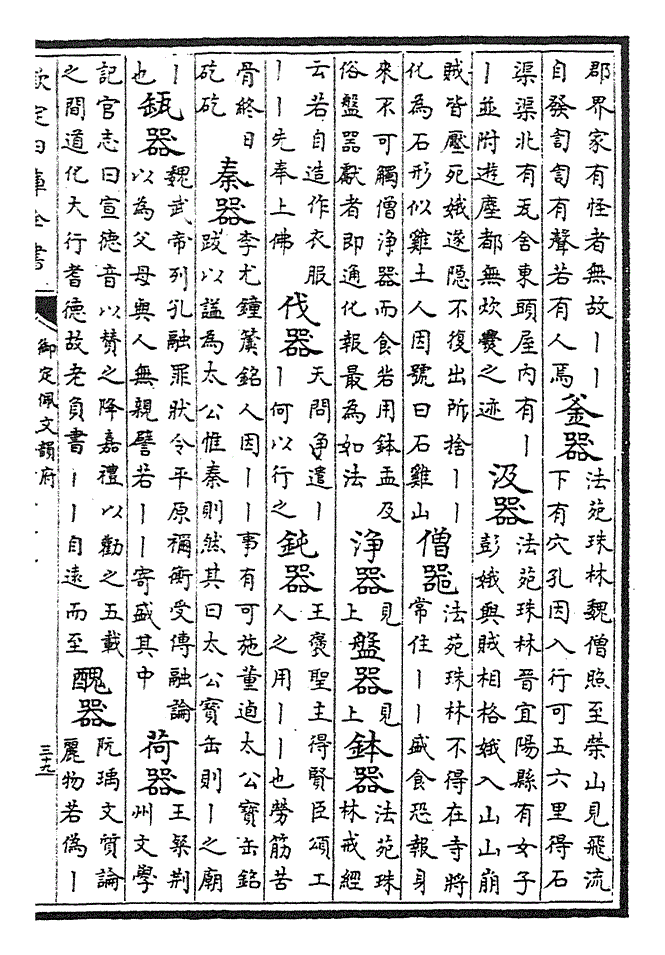 郡界家有怪者無故丨丨
自發訇訇有聲若有人焉
釜器
法苑珠林魏僧照至滎山見飛流
下有穴孔因入行可五六里得石
渠渠北有瓦舍東頭屋内有丨
丨並附遊塵都無炊爨之迹
汲器
法苑珠林晉宜陽縣有女子
彭娥與賊相格娥入山山崩
賊皆壓死娥遂隱不復出所捨丨丨
化為石形似雞土人因號曰石雞山
僧器
法苑珠林不得在寺將
常住丨丨盛食恐報身
來不可觸僧浄器而食若用鉢盂及
俗盤器獻者即通化報最為如法
浄器
見上
盤器
見上
鉢器
法苑珠
林戒經
云若自造作衣服
丨丨先奉上佛
伐器
天問争遣丨
丨何以行之
鈍器
王褒聖主得賢臣頌工
人之用丨丨也勞筋苦
骨終日
矻矻
秦器
李尤鐘簴銘人因丨丨事有可施董逌太公寶缶銘
跋以謚為太公惟秦則然其曰太公寶缶則丨之廟
丨
也
缻器
魏武帝列孔融罪狀令平原禰衡受傳融論
以為父母與人無親譬若丨丨寄盛其中
荷器
王粲荆
州文學
記官志曰宣德音以贊之降嘉禮以勸之五載
之間道化大行耆德故老負書丨丨自遠而至
醜器
阮瑀文質論
麗物若偽丨
欽定四庫全書
御定佩文韻府
三十九